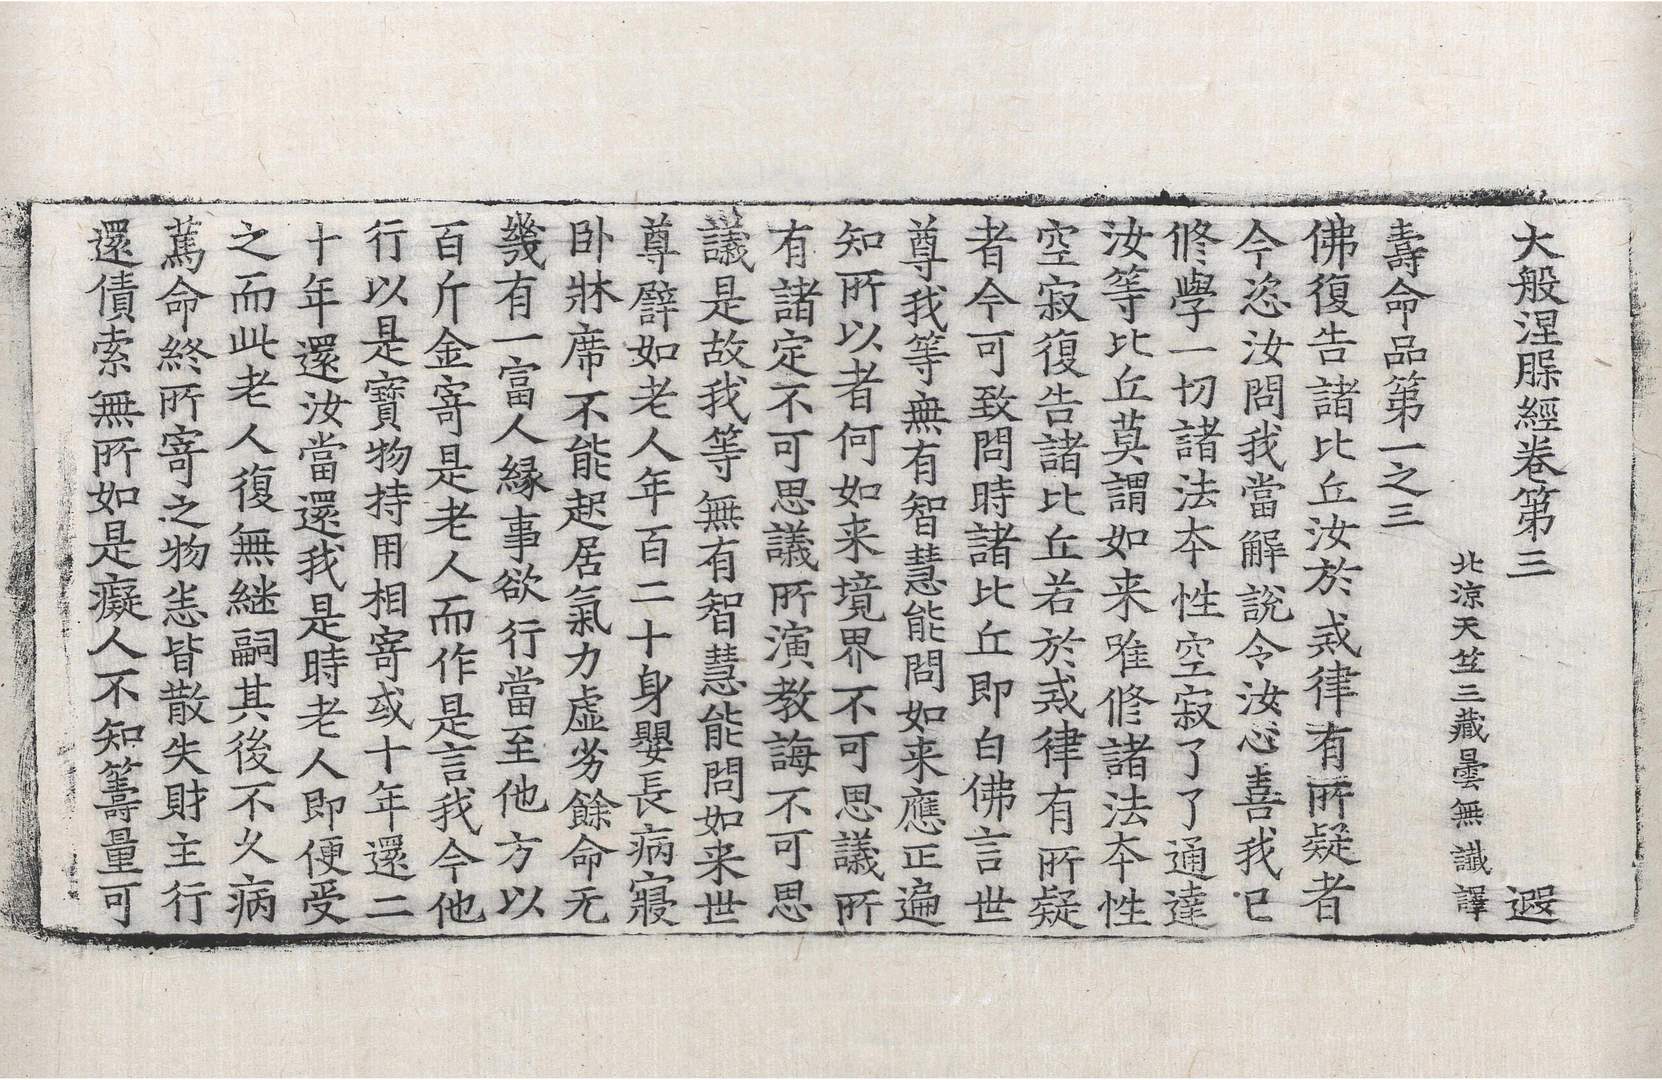 大般涅槃經卷第三 遐
北涼天竺三藏曇無讖譯
壽命品第一之三
佛復告諸比丘汝於戒律有所疑者
今恣汝問我當解說令汝心喜我已
修學一切諸法夲性空寂了了通達
汝等比丘莫謂如来唯修諸法夲性
空寂復告諸比丘若於戒律有所疑
者今可致問時諸比丘即白佛言世
尊我等無有智慧能問如来應正遍
知所以者何如来境界不可思議所
有諸定不可思議所演教誨不可思
議是故我等無有智慧能問如来世
尊譬如老人年百二十身嬰長病寢
卧牀席不能起居氣力虛劣餘命无
幾有一富人緣事欲行當至他方以
百斤金寄是老人而作是言我今他
行以是寶物持用相寄或十年還二
十年還汝當還我是時老人即便受
之而此老人復無継嗣其後不久病
篤命終所寄之物悉皆散失財主行
還債索無所如是癡人不知籌量可